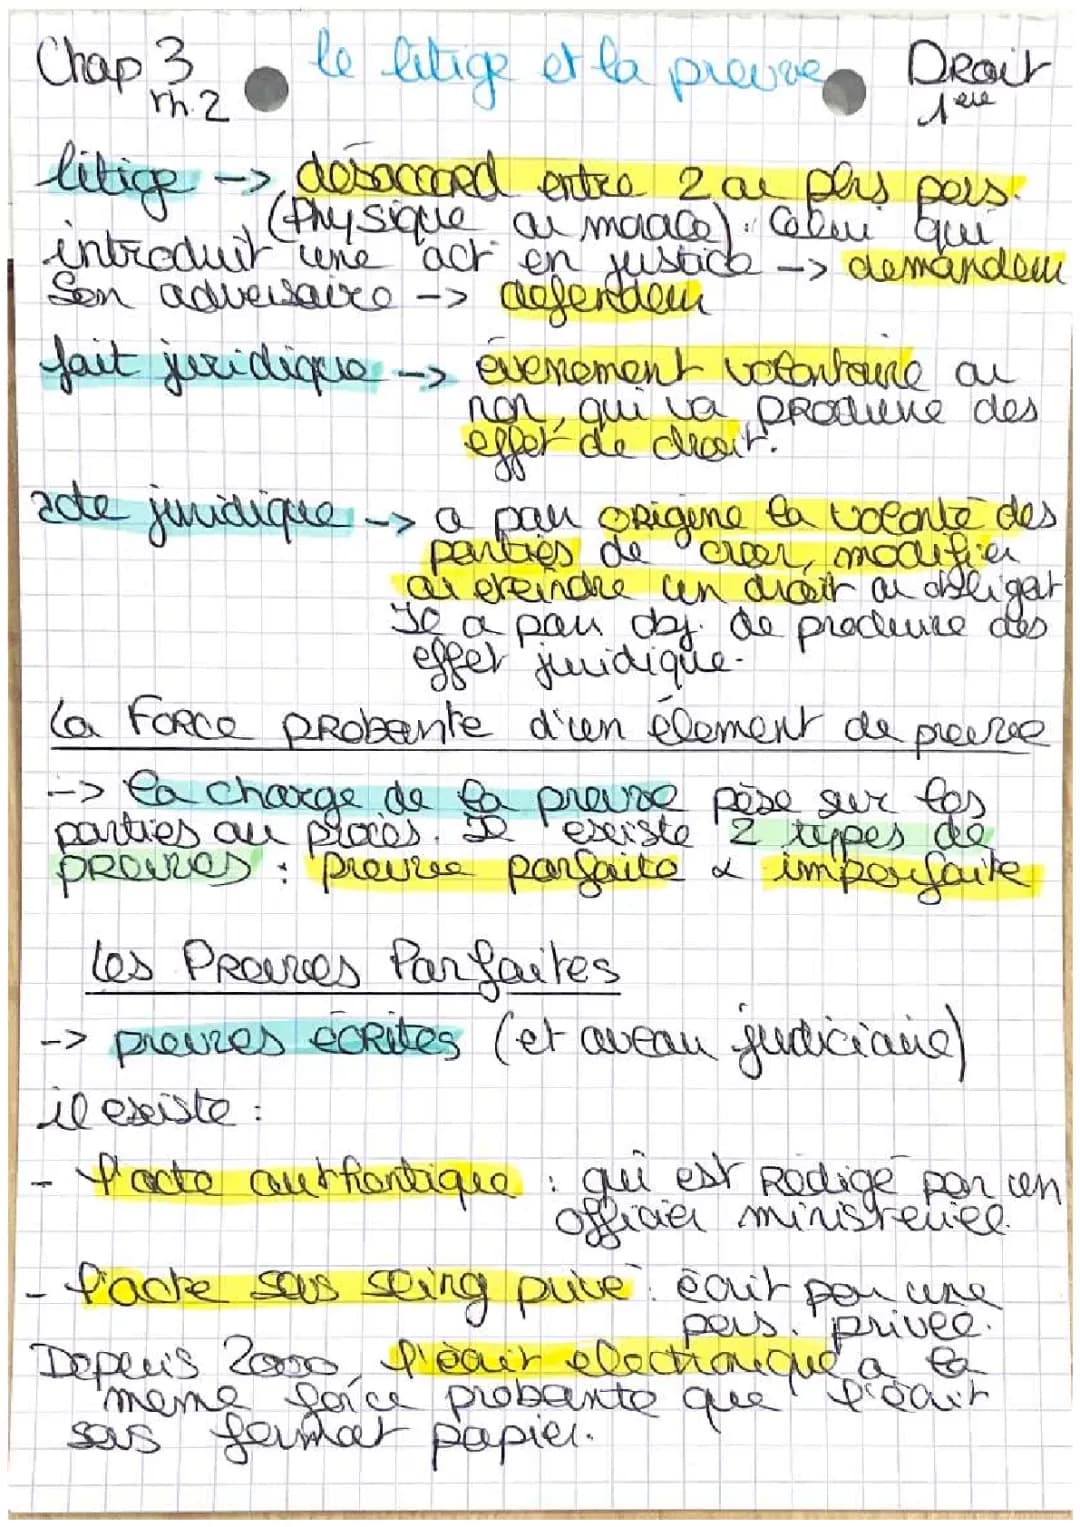 Chap 3 le litige et la preuve Droit
th.2 1ere
litige -> désaccord entre 2 ou plus pers.
(physique ou morale). Celui qui
introduit une act° en justice -> demandeur
Son adversaire -> defendeur
fait juridique -> évenement volontaire ou
non, qui va produire des
effet de droit.
acte juridique -> a pour origine la volonté des
parties de creer, modifier
ou éteindre un droit ou obligat°
Il a pour obj. de produire des
effet juridique.
La Force probante d'un élément de preuve
-> la charge de la preuve pèse sur les
parties au procès. Il existe 2 types de
preuves : preuve parfaite & imparfaite
Les Preuves Parfaites
-> preuves écrites (et aveau judiciaire)
il existe :
- l'acte authentique : qui est Rédigé par un
officier ministeriel.
- l'acte sous seing privé : écrit par une
pers. privée.
Depuis 2000, l'écrit electronique a la
meme force probante que l'écrit
sous format papier.